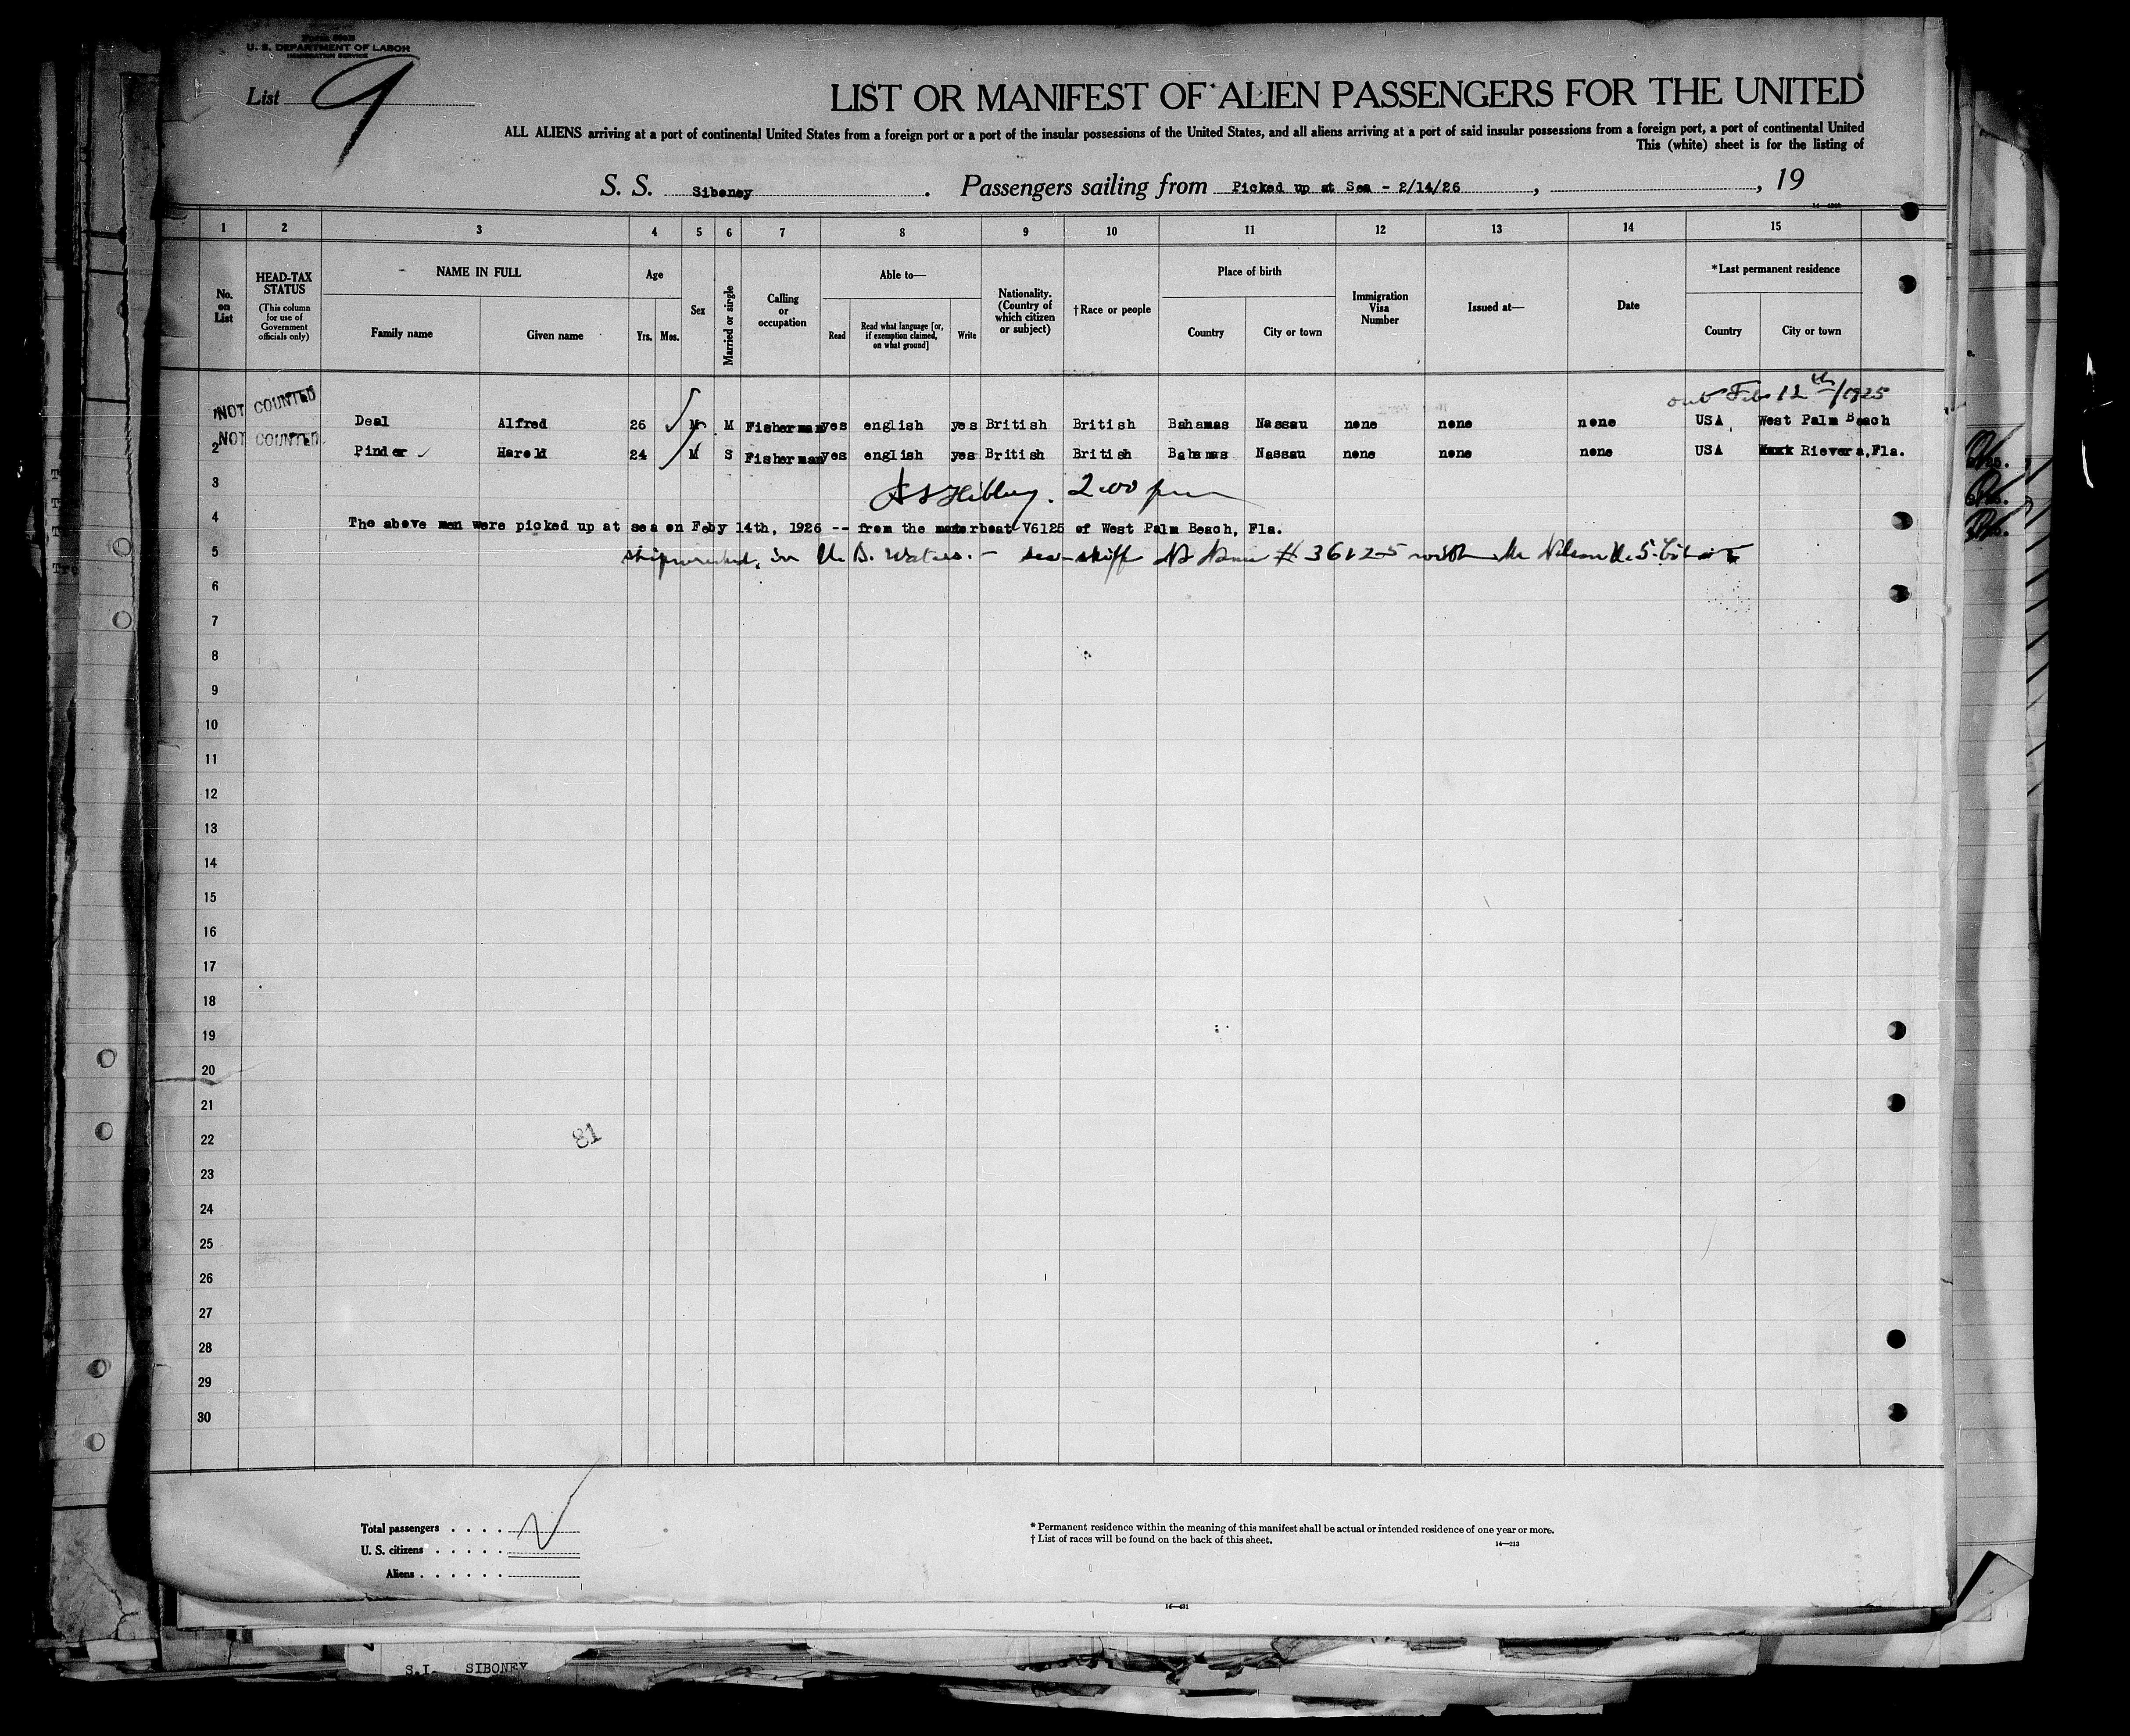 U. S. DEPARTMENT OF LABOR
IMMIGRATION SERVICE
List 9
LIST OR MANIFEST OF ALIEN PASSENGERS FOR THE UNITED
ALL ALIENS arriving at a port of continental United States from a foreign port or a port of the insular possessions of the United States, and all aliens arriving at a port of said insular possessions from a foreign port, a port of continental United
This (white) sheet is for the listing of
S. S. Siboney . Passengers sailing from Picked up at Sea - 2/14/26 , , 19
1 2 3 4 5 6 7 8 9 10 11 12 13 14 15
No. on List
HEAD-TAX STATUS
(This column for use of Government officials only)
NAME IN FULL
Family name Given name
Age
Yrs. Mos.
Sex
Married or single
Calling or occupation
Able to—
Read Read what language [or, if exemption claimed, on what ground] Write
Nationality. (Country of which citizen or subject)
†Race or people
Place of birth
Country City or town
Immigration Visa Number
Issued at—
Date
*Last permanent residence
Country City or town
out Feb 12th/1925
NOT COUNTED Deal Alfred 26 M M Fisherman yes english yes British British Bahamas Nassau none none none USA West Palm Beach
2 NOT COUNTED Pinder Harold 24 M S Fisherman yes english yes British British Bahamas Nassau none none none USA Rievera,Fla.
3 2:00 pm
4 The above men were picked up at sea on Feby 14th, 1926 -- from the motorboat V6125 of West Palm Beach, Fla.
5 shipwrecked, in U. S. Waters. - sea skiff No Name # 36125 with
6
7
8
9
10
11
12
13
14
15
16
17
18
19
20
21
22
81
23
24
25
26
27
28
29
30
Total passengers . . . .
U. S. citizens . . . . .
Aliens . . . . . .
* Permanent residence within the meaning of this manifest shall be actual or intended residence of one year or more.
† List of races will be found on the back of this sheet.
14—213
S.I. SIBONEY